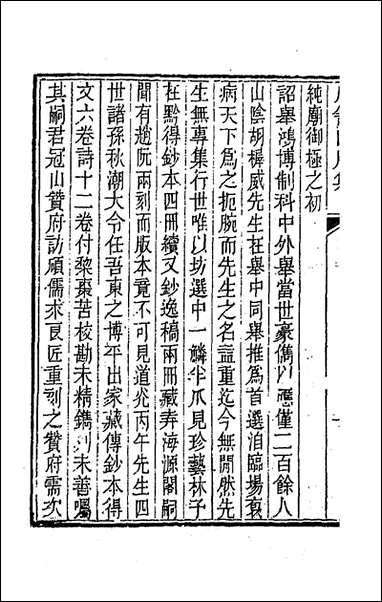 純廟御極之初
詔舉鴻博制科中外舉當世豪儁以應僅二百餘人
山陰胡樨威先生在舉中同舉推爲首選洎臨場𮗚
病天下爲之扼腕而先生之名益重迄今無閒然先
生無專集行世唯以坊選中一鱗半爪見珍藝林子
在黔得鈔本四冊續又鈔逸稿兩冊藏弆海源閣嗣
聞有趙阮兩刻而版本竟不可見道光丙午先生四
世諸孫秋潮大令任吾東之博平出家藏傳鈔本得
文六卷詩十二卷付黎棗苦校勘未精鐫刋未善囑
其嗣君冠山贊府訪碩儒求良匠重刻之贊府需次